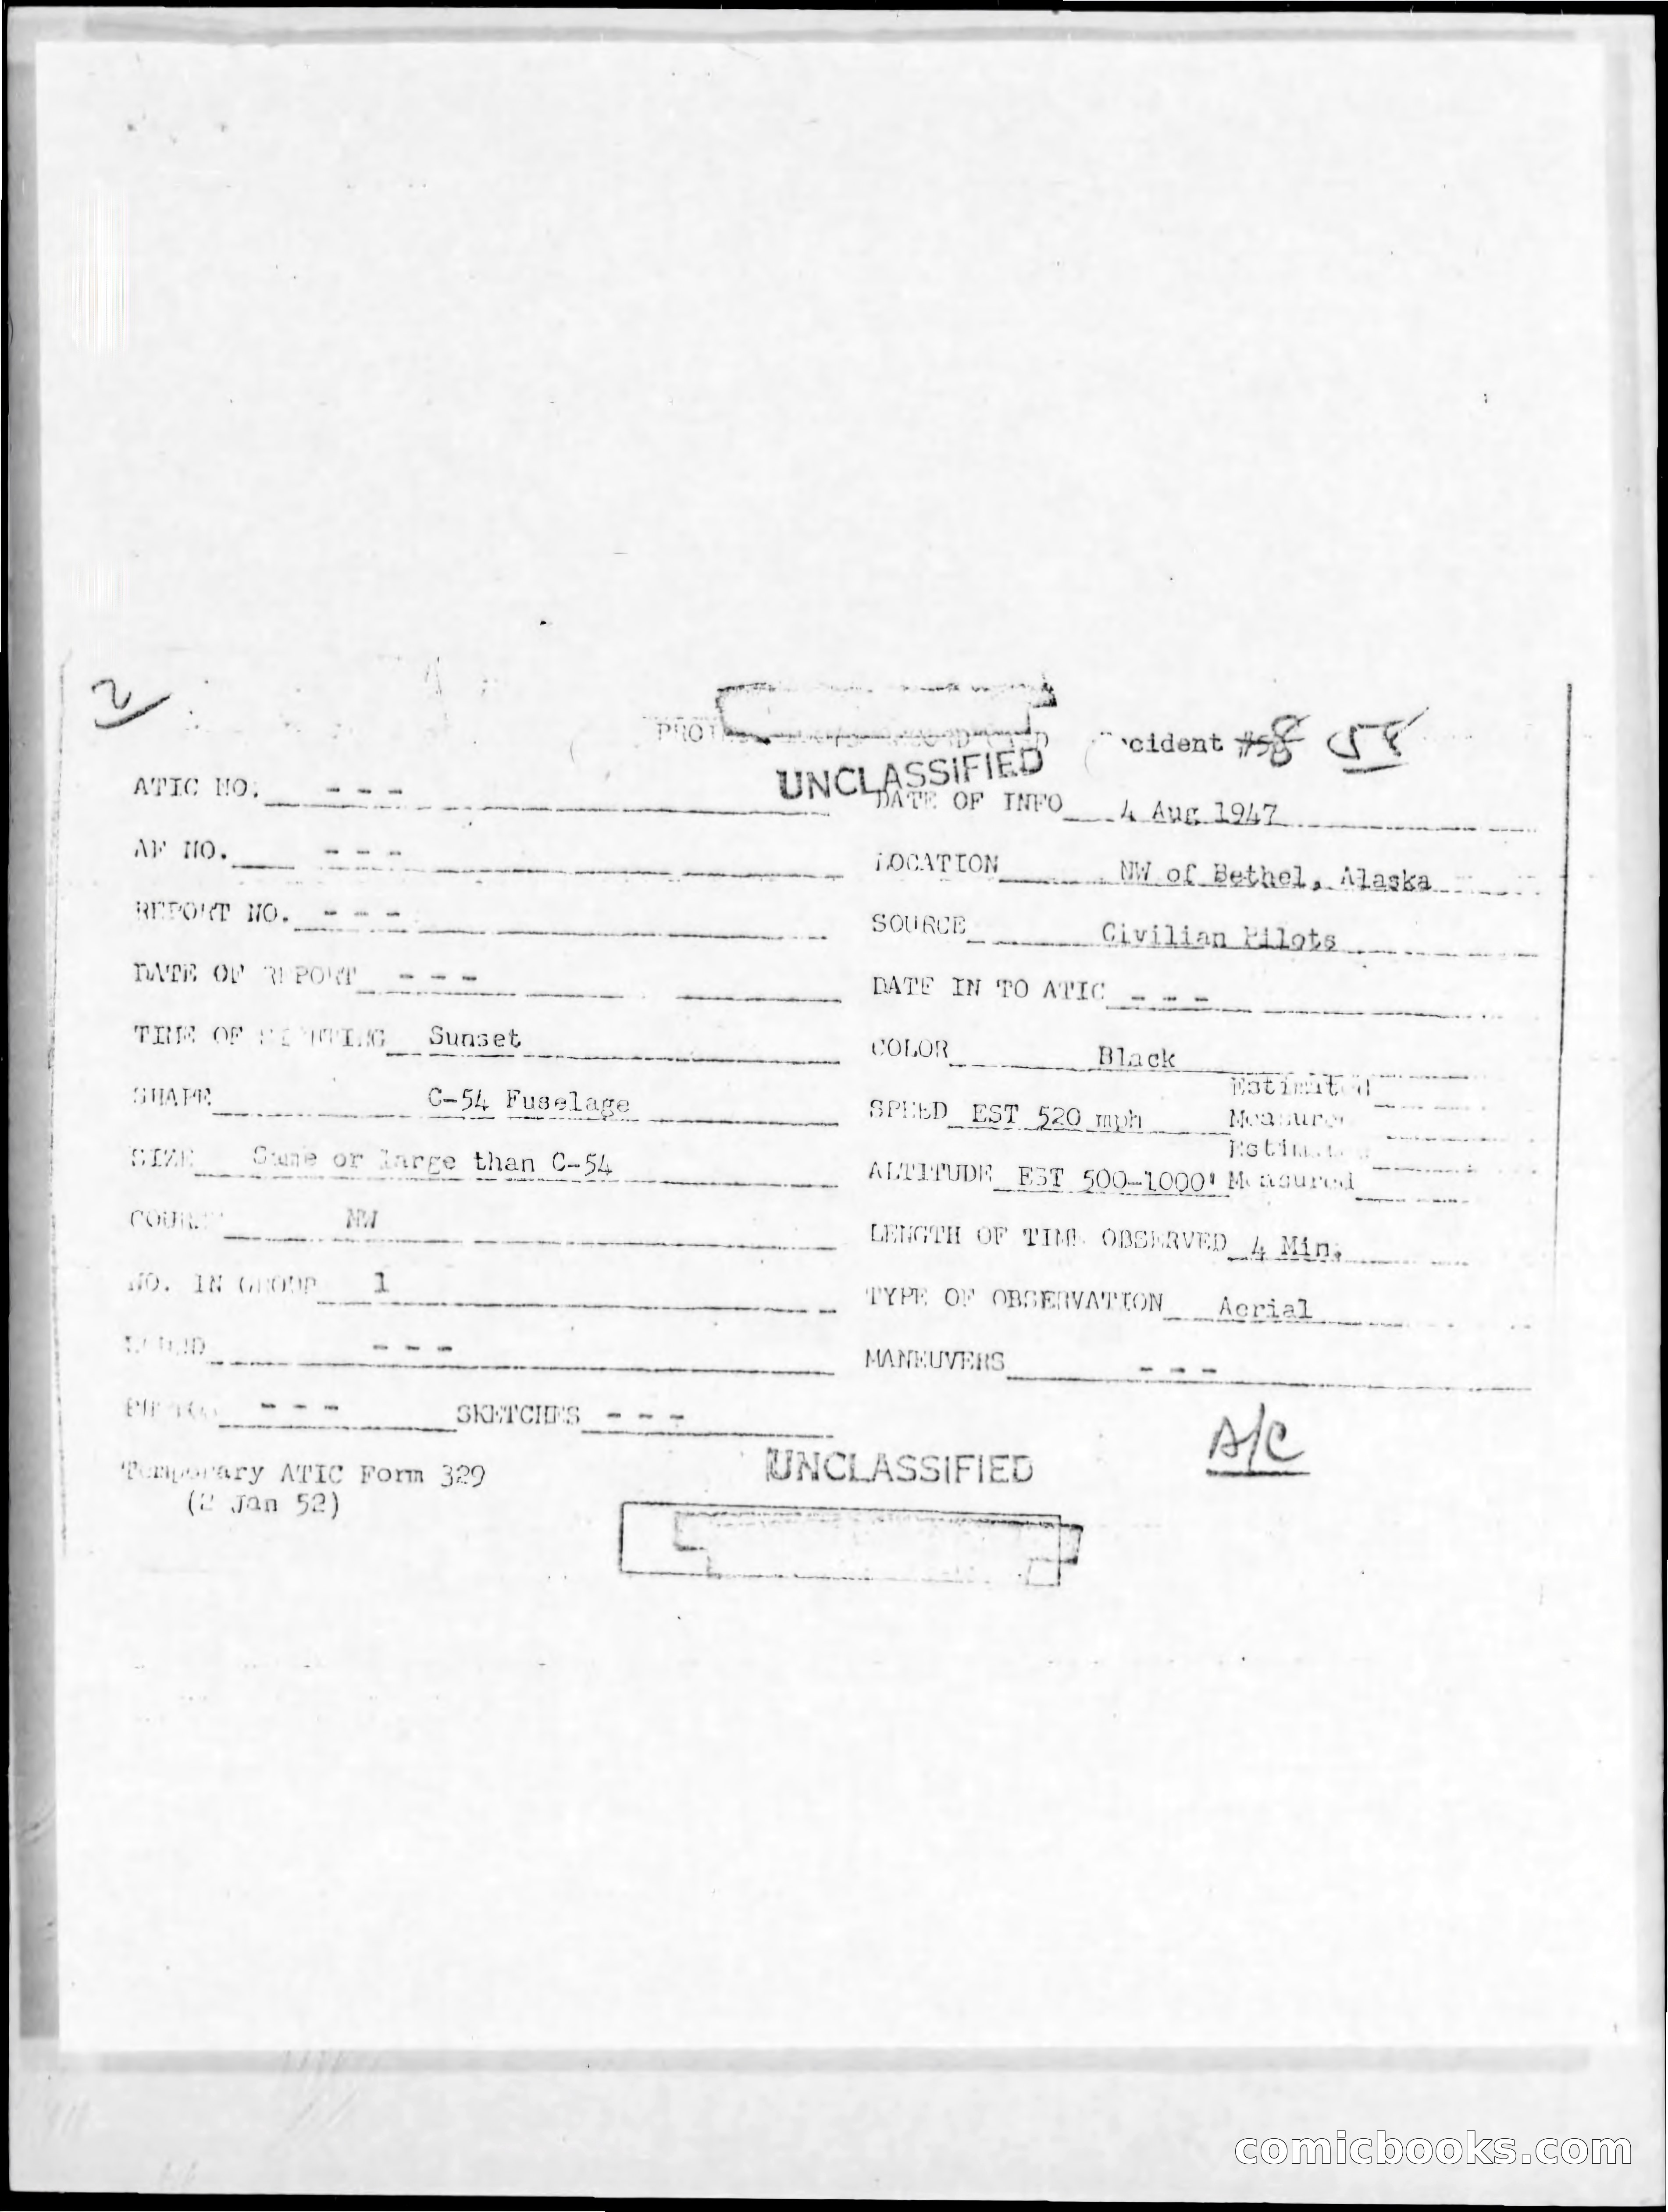 2
Incident #58 58
UNCLASSIFIED
ATIC NO. - - -
DATE OF INFO 4 Aug 1947
AF NO. - - -
LOCATION NW of Bethel, Alaska
REPORT NO. - - -
SOURCE Civilian Pilots
DATE OF REPORT - - -
DATE IN TO ATIC - - -
TIME OF SIGHTING Sunset
COLOR Black
SHAPE C-54 Fuselage
Estimated
SPEED EST 520 mph Measured
SIZE Same or large than C-54
Estimated
ALTITUDE EST 500-1000' Measured
COURSE NW
LENGTH OF TIME OBSERVED 4 Min.
NO. IN GROUP 1
TYPE OF OBSERVATION Aerial
SOUND - - -
MANEUVERS - - -
PHOTOS - - - SKETCHES - - -
A/C
Temporary ATIC Form 329
(2 Jan 52)
UNCLASSIFIED
comicbooks.com